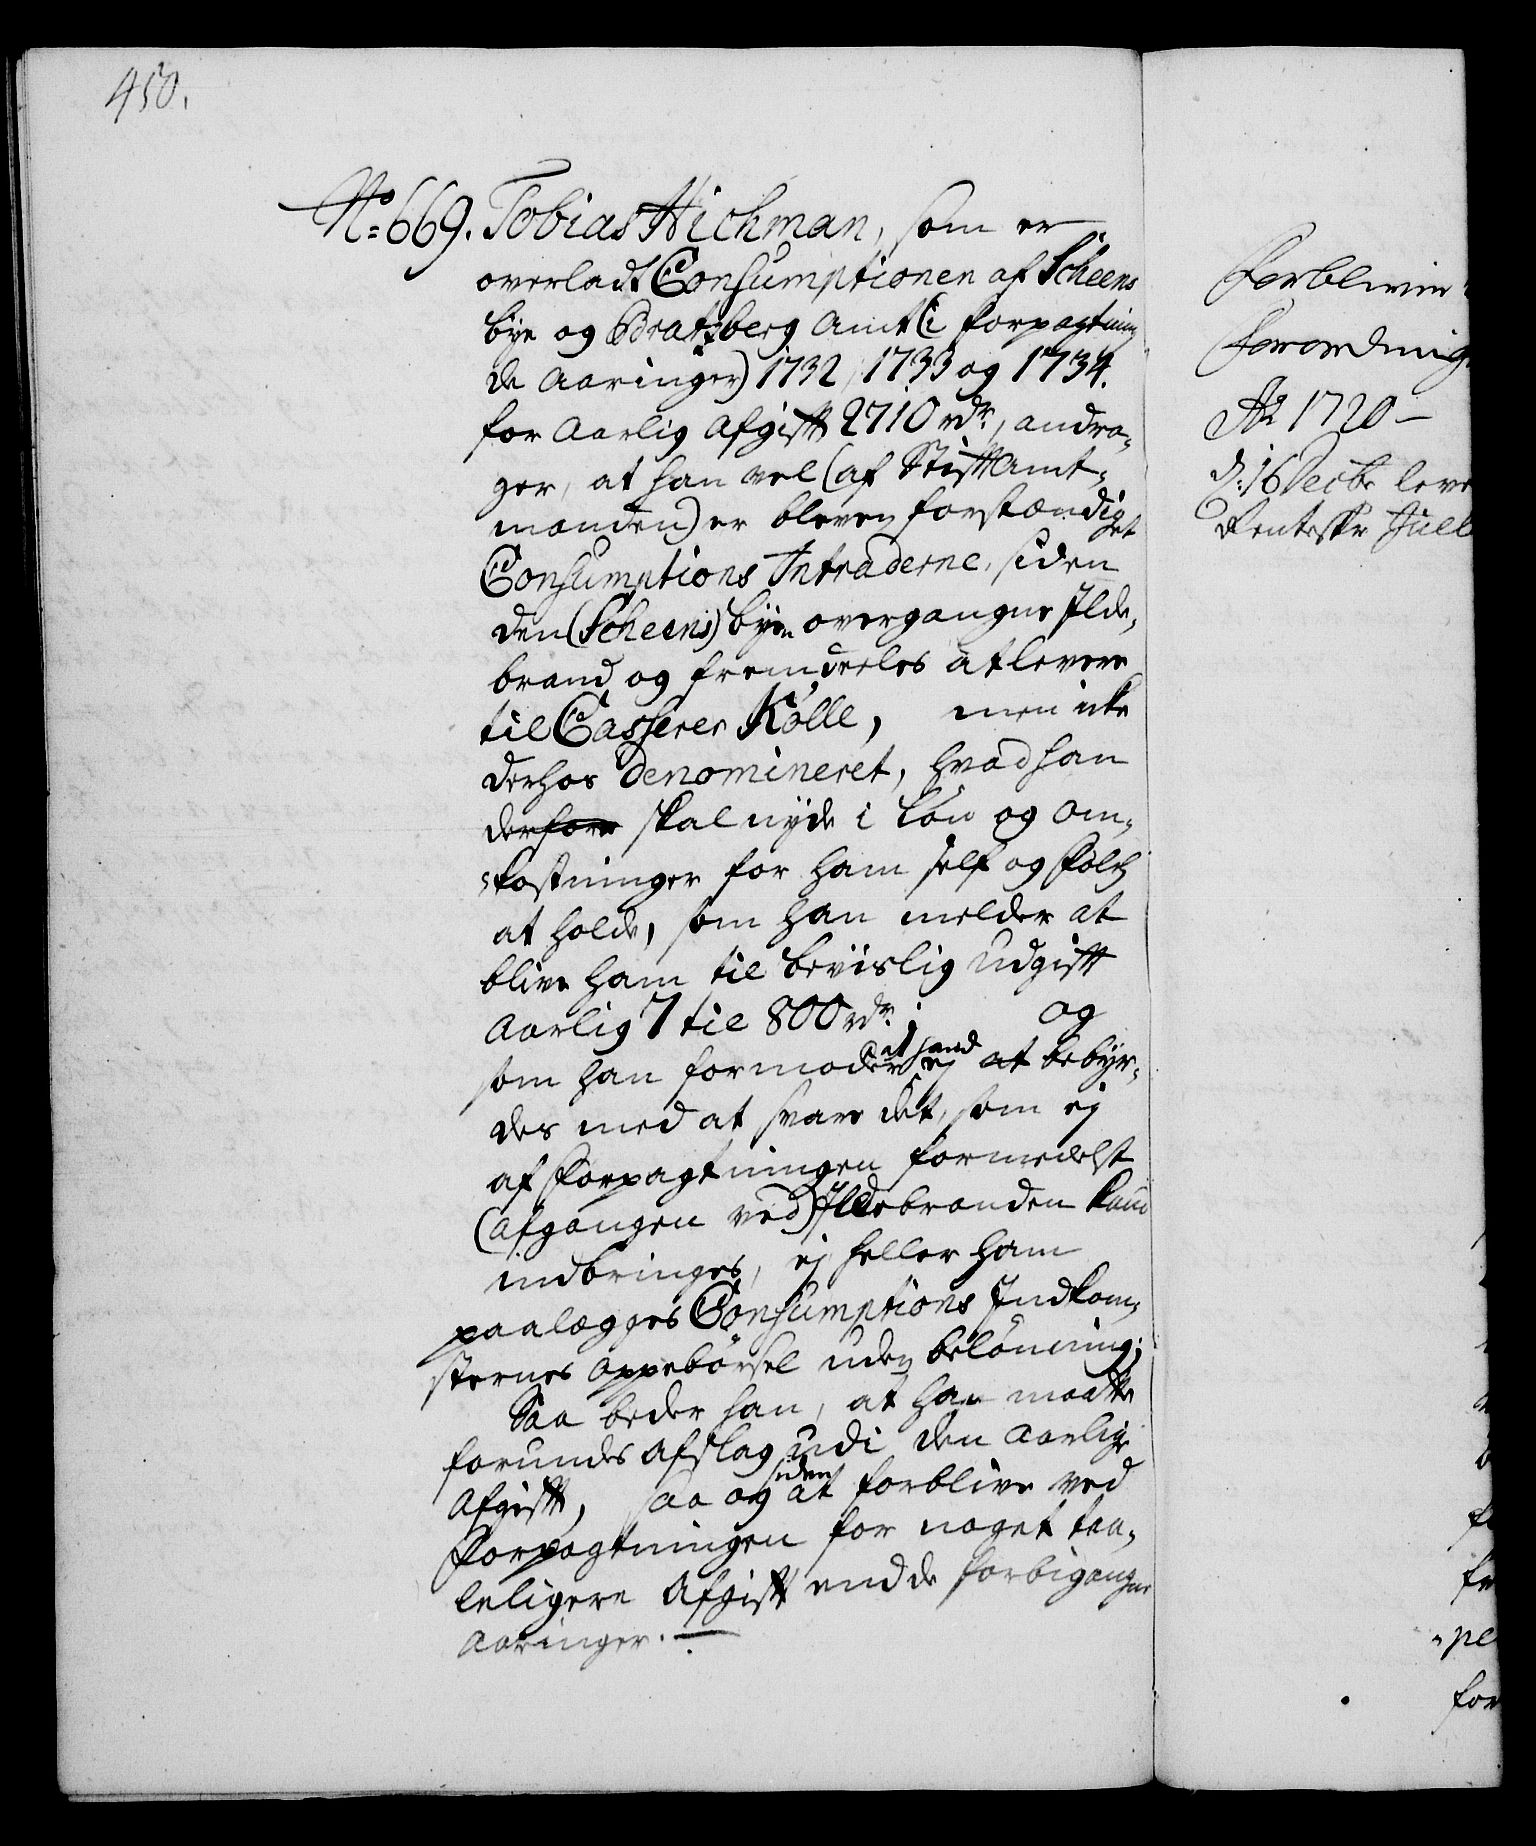 450.
No: 669. Tobias Hichman, som er
overladt Consumptionen af Scheens
bye og Bratzberg Amt (i forpagtning
de aaringer) 1732, 1733 og 1734.
for aarlig afgifft 2710 rdr, andra-
ger, at han vel (af Stifftamt-
manden) er bleven forstændiget
Consumptions Intraderne, siden
den (Scheens) byen overgangne Ilde-
brand og fremdeeles at levere
til Casserer Kölle, men icke
derhos denomineret, hvad han
derfore skal nyde i Løn og Om-
kostninger for ham self og Folch
at holde, som han melder at
blive ham til bevislig udgifft
aarlig 7 til 800 rdr; og
som han formoder at hand ej at bebyr-
des med at svare det, som ej
af Forpagtningen formedelst
(afgangen ved) Ildebranden kand
indbringes, ej heller ham
paalegges Consumptions Indkom-
sternes oppebörsel uden belönning;
Saa beder han, at han maatte
forundes afslag udi den aarlige
Afgifft, saa og siden at forblive ved
Forpagtningen for noget taa-
leligere Afgifft end de forbigangne
aaringer.
Forbliver
Forordning
Ao 1720 -
d: 16 Decbr leve
Renteskr Juel
pe
for